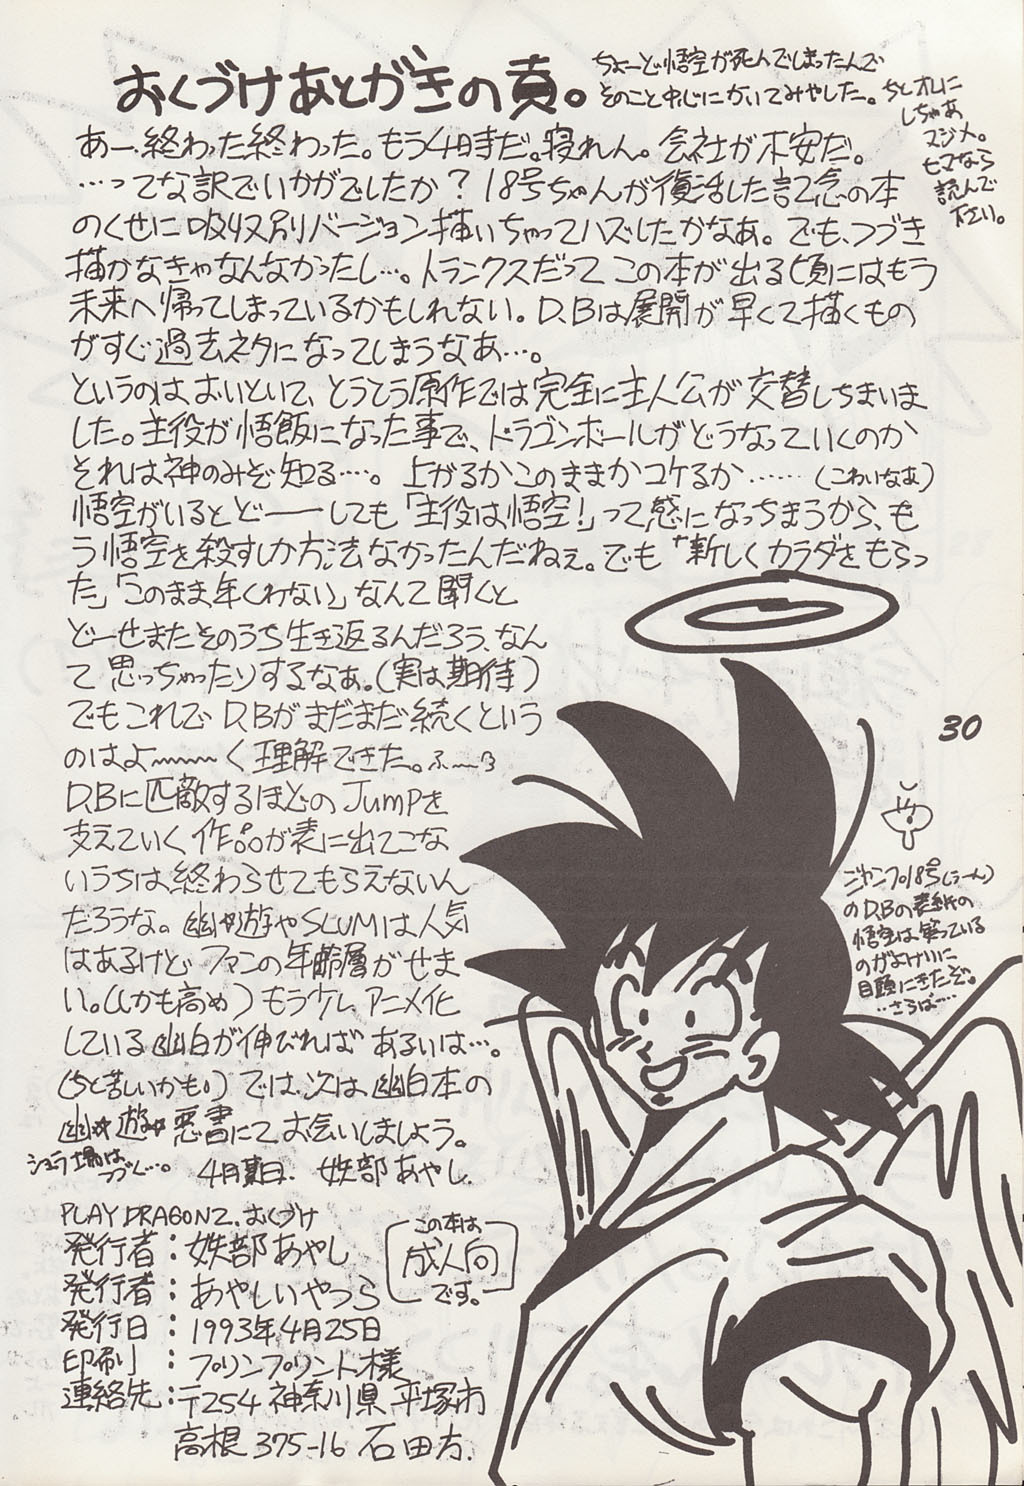 おくづけあとがきの頁。
ちょーど悟空が死んでしまったんで
そのこと中心にかいてみやした。
ちとオレに
しちゃあ
マジメ。
ヒマなら
読んで
下さい。
あー、終わった終わった。もう4時だ。寝れん。会社が不安だ。
…ってな訳でいかがでしたか？18号ちゃんが復活した記念の本
のくせに吸収別バージョン描いちゃってハズしたかなあ。でも、つづき
描かなきゃなんなかったし…。トランクスだってこの本が出る頃にはもう
未来へ帰ってしまっているかもしれない。D.Bは展開が早くて描くもの
がすぐ過去ネタになってしまうなあ…。
というのはおいといて、とうとう原作では完全に主人公が交替しちまいま
した。主役が悟飯になった事で、ドラゴンボールがどうなっていくのか
それは神のみぞ知る…。上がるかこのままかコケるか……（こわいなあ）
悟空がいるとどーーしても「主役は悟空！」って感になっちまうから、も
う悟空を殺すしか方法なかったんだねぇ。でも「新しくカラダをもらっ
た」「このまま年くわない」なんて聞くと
どーせまたそのうち生き返るんだろう、なん
て思っちゃったりするなあ。（実は期待）
でもこれでD.Bがまだまだ続くという
のはよ〜〜く理解できた。ふーぅ
D.Bに匹敵するほどのJUMPを
支えていく作品が表に出てこな
いうちは終わらせてもらえないん
だろうな。幽☆遊やSLUMは人気
はあるけどファンの年齢層がせま
い。（しかも高め）もう少しアニメ化
している幽白が伸びればあるいは…。
（ちと苦しいかも。）では、次は幽白本の
幽☆遊☆悪書にてお会いしましょう。
シュラ場は
つづく…。
4月某日. 妖部あやし.
30
ジャンプ18号（うーん）
のD.Bの表紙の
悟空は笑っている
のがよけいに
目頭にきたぞ。
…さらば…
PLAY DRAGON 2. おくづけ
発行者：妖部あやし
発行者：あやしいやつら
発行日：1993年4月25日
印刷：プリンプリント様
連絡先：〒254 神奈川県平塚市
高根375-16 石田方.
この本は
成人向
です。